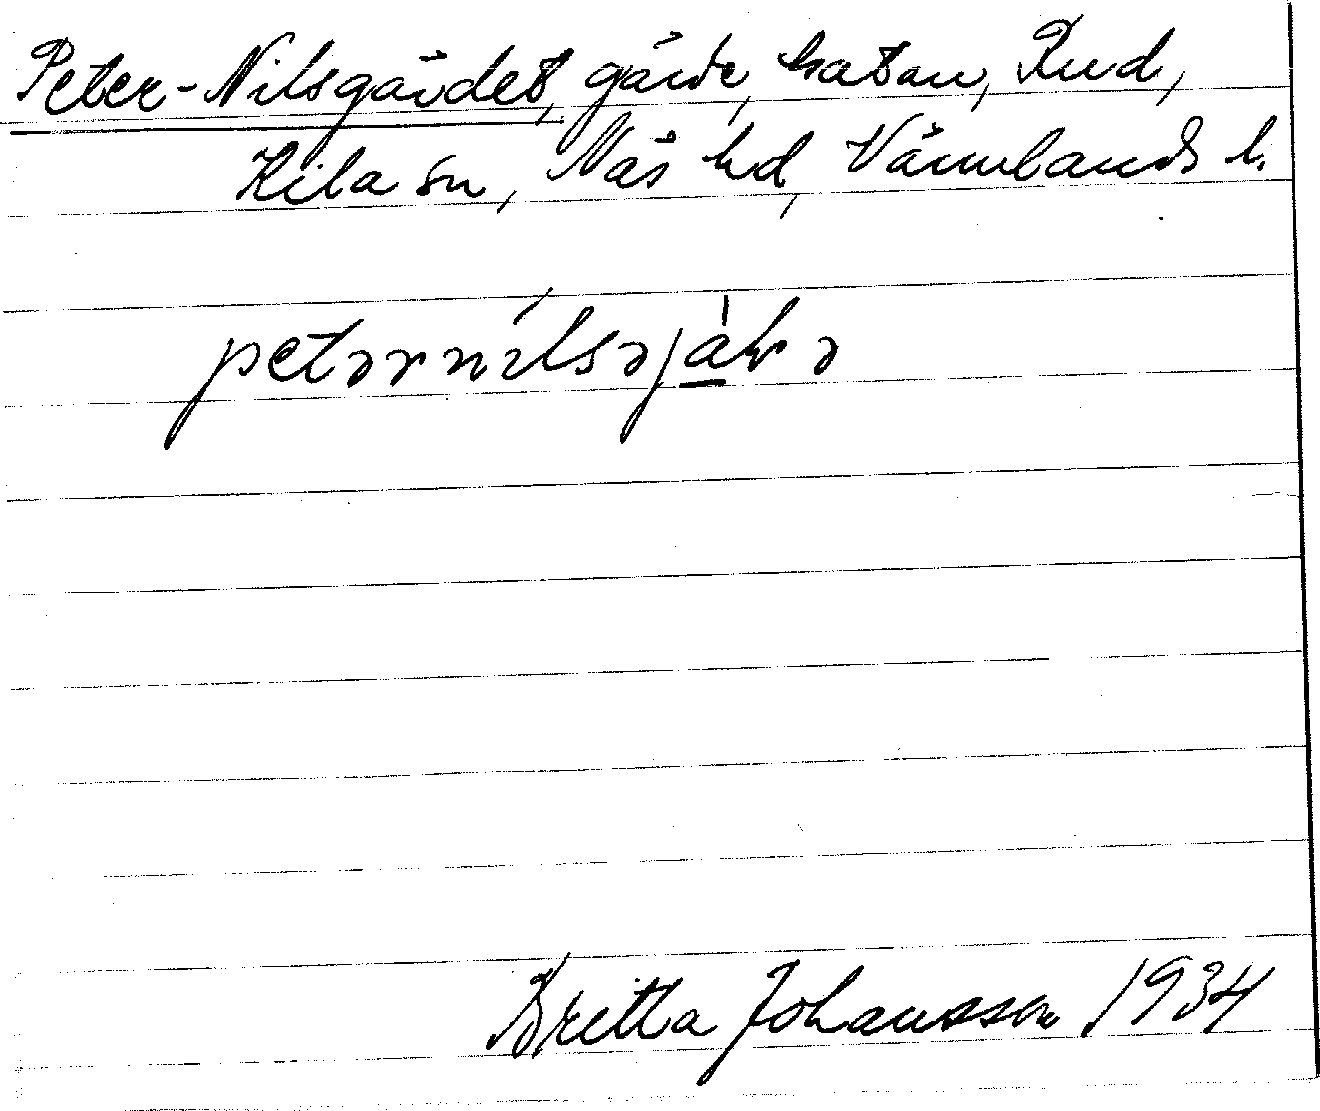 Peter-Nilsgärdet, gärde, hatan, Rud,
Kila sn, Näs hd, Värmlands l.
petərnílsəjàɫə
Britta Johansson 1934